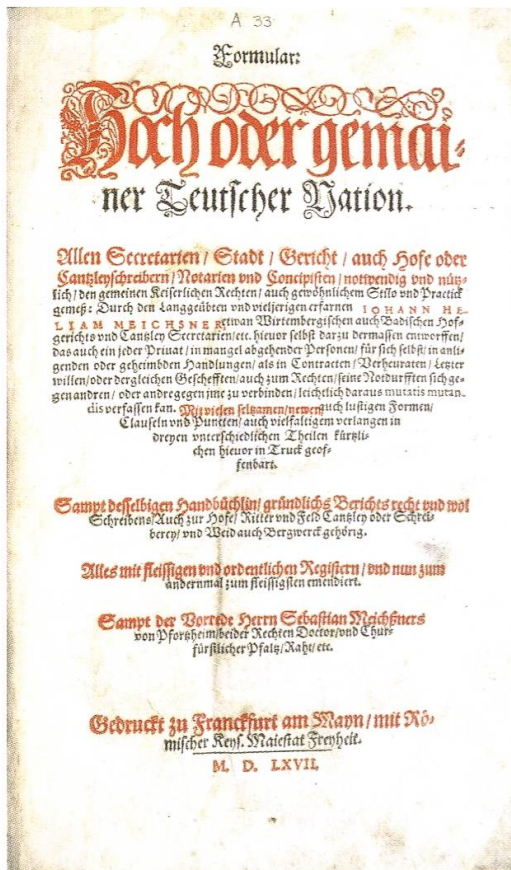 A 33
Formular:
Hoch oder gemai-
ner Teutscher Nation.
Allen Secretarien / Stadt / Gericht / auch Hofe oder
Cantzleyschreibern / Notarien vnd Concipisten / notwendig vnd nütz-
lich / den gemeinen Keiserlichen Rechten / auch gewöhnlichem Stilo vnd Practick
gemeß: Durch den Langgeübten vnd vieljerigen erfarnen IOHANN HE-
LIAM MEICHSNER etwan Wirtembergischen auch Badischen Hof-
gerichts vnd Cantzley Secretarien / etc. hieuor selbst darzu dermassen entworffen /
das auch ein jeder Priuat / in mangel abgehender Personen / für sich selbst / in anli-
genden oder geheimbden Handlungen / als in Contracten / Verheuraten / Letzter
willen / oder dergleichen Geschefften / auch zum Rechten / seine Notdurfften sich ge-
gen andren / oder andre gegen jme zu verbinden / leichtlich daraus mutatis mutan-
dis verfassen kan. Mit vielen seltzamen / newen auch lustigen Formen /
Clauseln vnd Puncten / auch vielfaltigem verlangen in
dreyen vnterschiedlichen Theilen kürtzli-
chen hieuor in Truck geof-
fenbart.
Sampt desselbigen Handbüchlin / gründlichs Berichts recht vnd wol
Schreibens / Auch zur Hofe / Ritter vnd Feld Cantzley oder Schrei-
berey / vnd Weid auch Bergwerck gehörig.
Alles mit fleissigen vnd ordentlichen Registern / vnd nun zum
andernmal zum fleissigsten emendiert.
Sampt der Vorrede Herrn Sebastian Meichßners
von Pfortzheim / beider Rechten Doctor / vnd Chur-
fürstlicher Pfaltz / Raht / etc.
Gedruckt zu Franckfurt am Mayn / mit Rö-
mischer Keys. Maiestat Freyheit.
M. D. LXVII.